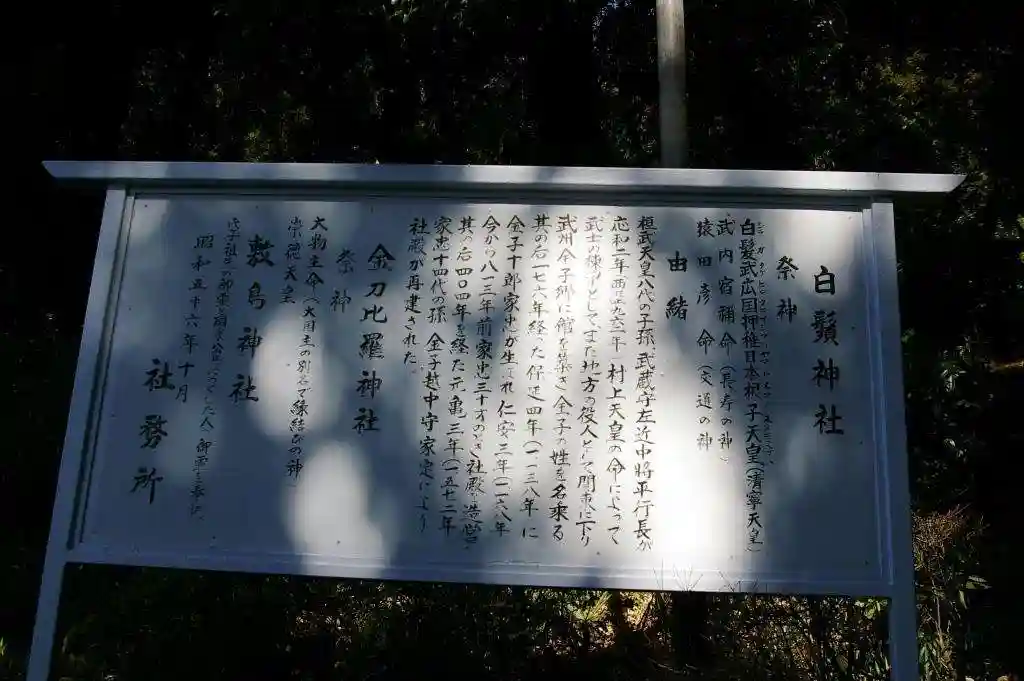 白鬚神社
祭神
白髪武広国押稚日本根子天皇(清寧天皇)
武内宿禰命(長寿の神)
猿田彦命(交道の神
由緒
桓武天皇八代の子孫武蔵守左近中將平行長が
応和二年西紀九六二年村上天皇の命によって
武士の棟りとしてまた地方の役人として関東に下り
武州金子郷に館を築き金子の姓を名乘る
其の后一七六年経った保延四年(一一三八年)に
金子十郎家忠が生れ仁安三年(一一六八年
今から八一三年前家忠三十才のとき社殿を造営
其の后四〇四年を経た元亀三年(一五七二年
家忠十四代の孫金子越中守家定により
社殿が再建された
金刀比羅神社
祭神
大物主命(大国主の別名で縁結びの神
崇徳天皇
敷島神社
戊子祖生の部落を
御霊を奉祀
昭和五十六年十月
社務所